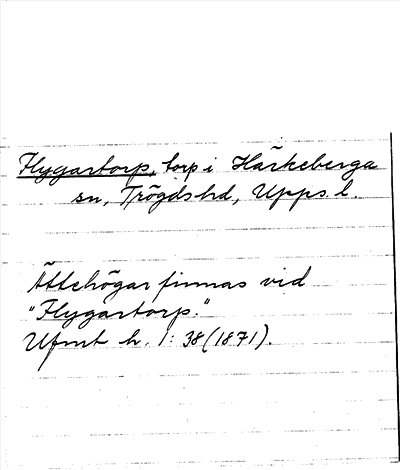 Flygartorp, torp i Härkeberga
sn, Trögds hd, Upps l.
Ättehögar finnas vid
"Flygartorp."
Ufmt h. 1: 38 (1871).